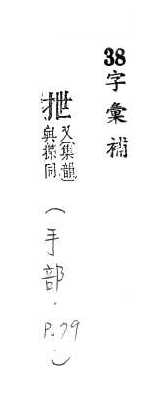 38字彙補
抴又集韻與揲同
(手部.P.79)